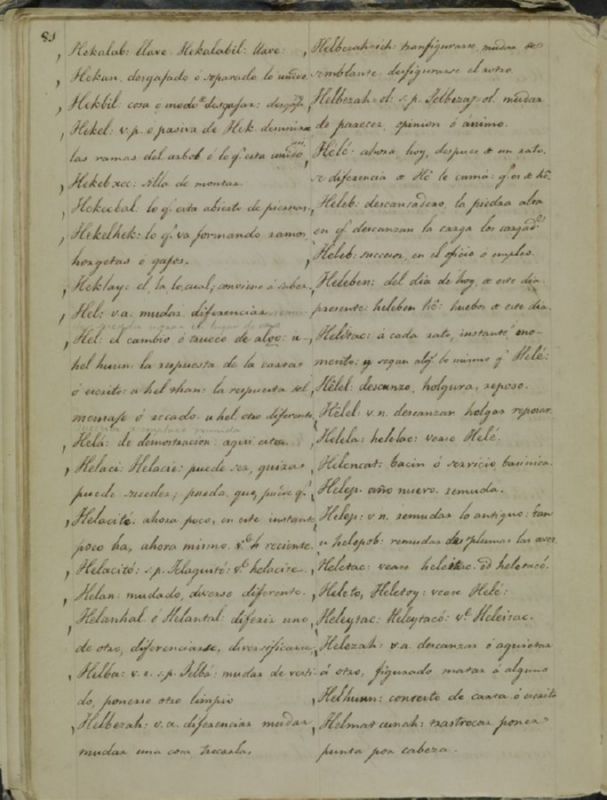 81
Hekalab: llave Hekalabil: llave.
Hekan, desgajado o separado lo unido
Hekbil: cosa o modo desgajar: desgaja
Hekel: v.p. o pasiva de Hek
las ramas del arbol ó lo qᵉ esta unido
Hekeb xec: silla de montar
Hekecbal. lo qᵉ esta abierto de piernas
Hekelhek: lo qᵉ va formando ramos
horquetas o gajos.
Heklay: el, la, lo, cual, conviene á saber.
Hel: v.a. mudar, diferenciar
Hel: el cambio ó trueco de algo: u-
hel huun: la respuesta de la carta
ó escrito: u hel than: la respuesta del
mensaje ó recado. u hel otro diferente
Helá: de demostracion: aqui esta.
Helaci: Helacie: puede ser, quizas
puede suceder; pueda que, puede qᵉ
Helacité. ahora poco, en este instante
poco ha, ahora mismo. vᵉ reciente.
Helacitó: s.p. vᵉ helacite.
Helan: mudado, diverso diferente.
Helanhal ó Helantal diferir uno
de otro, diferenciarse, diversificarse
Helba: v.r. s.p. Jelbá: mudar de vesti-
do, ponerse otro limpio
Helbezah: v.a. diferenciar mudar
mudar una cosa trocarla,
Helbezah-ich: transfigurarse, mudar de
semblante, desfigurarse el rostro
Helbezah-ol: s.p. Jelbezaj-ol. mudar
de parecer, opinion ó ánimo.
Helé: ahora, hoy, despues de un rato.
se diferencia de
Heleb: descansadero, la piedra alta
en qᵉ descanzan la carga los cargadˢ
Heleb: succesor, en el oficio ó empleo.
Heleben: del dia de hoy, de este dia
presente: heleben hé: huebos de este dia.
Heléitac: á cada rato, instante, mo-
mento: y segun algˢ lo mismo qᵉ Helé:
Hélel: descanzo, holgura, reposo.
Hélel v.n. descanzar holgar reposar.
Helela: helelac: vease Helé.
Helencat: bacin ó servicio
Helep. año nuevo. remuda.
Helep: v.n. remudar lo antiguo: tan
u helepob: remudar las plumas las aves.
Heletac: vease heleitac. id heletacó.
Heleto, Heletoy: vease Helé:
Heleytac: Heleytacó: vᵉ Heleitac.
Helezah: v.a. descanzar ó aquietar
á otro, figurado matar á alguno
Helhuun: contexto de carta ó escrito
Helmat cunah: trastrocar poner
punta por cabeza.